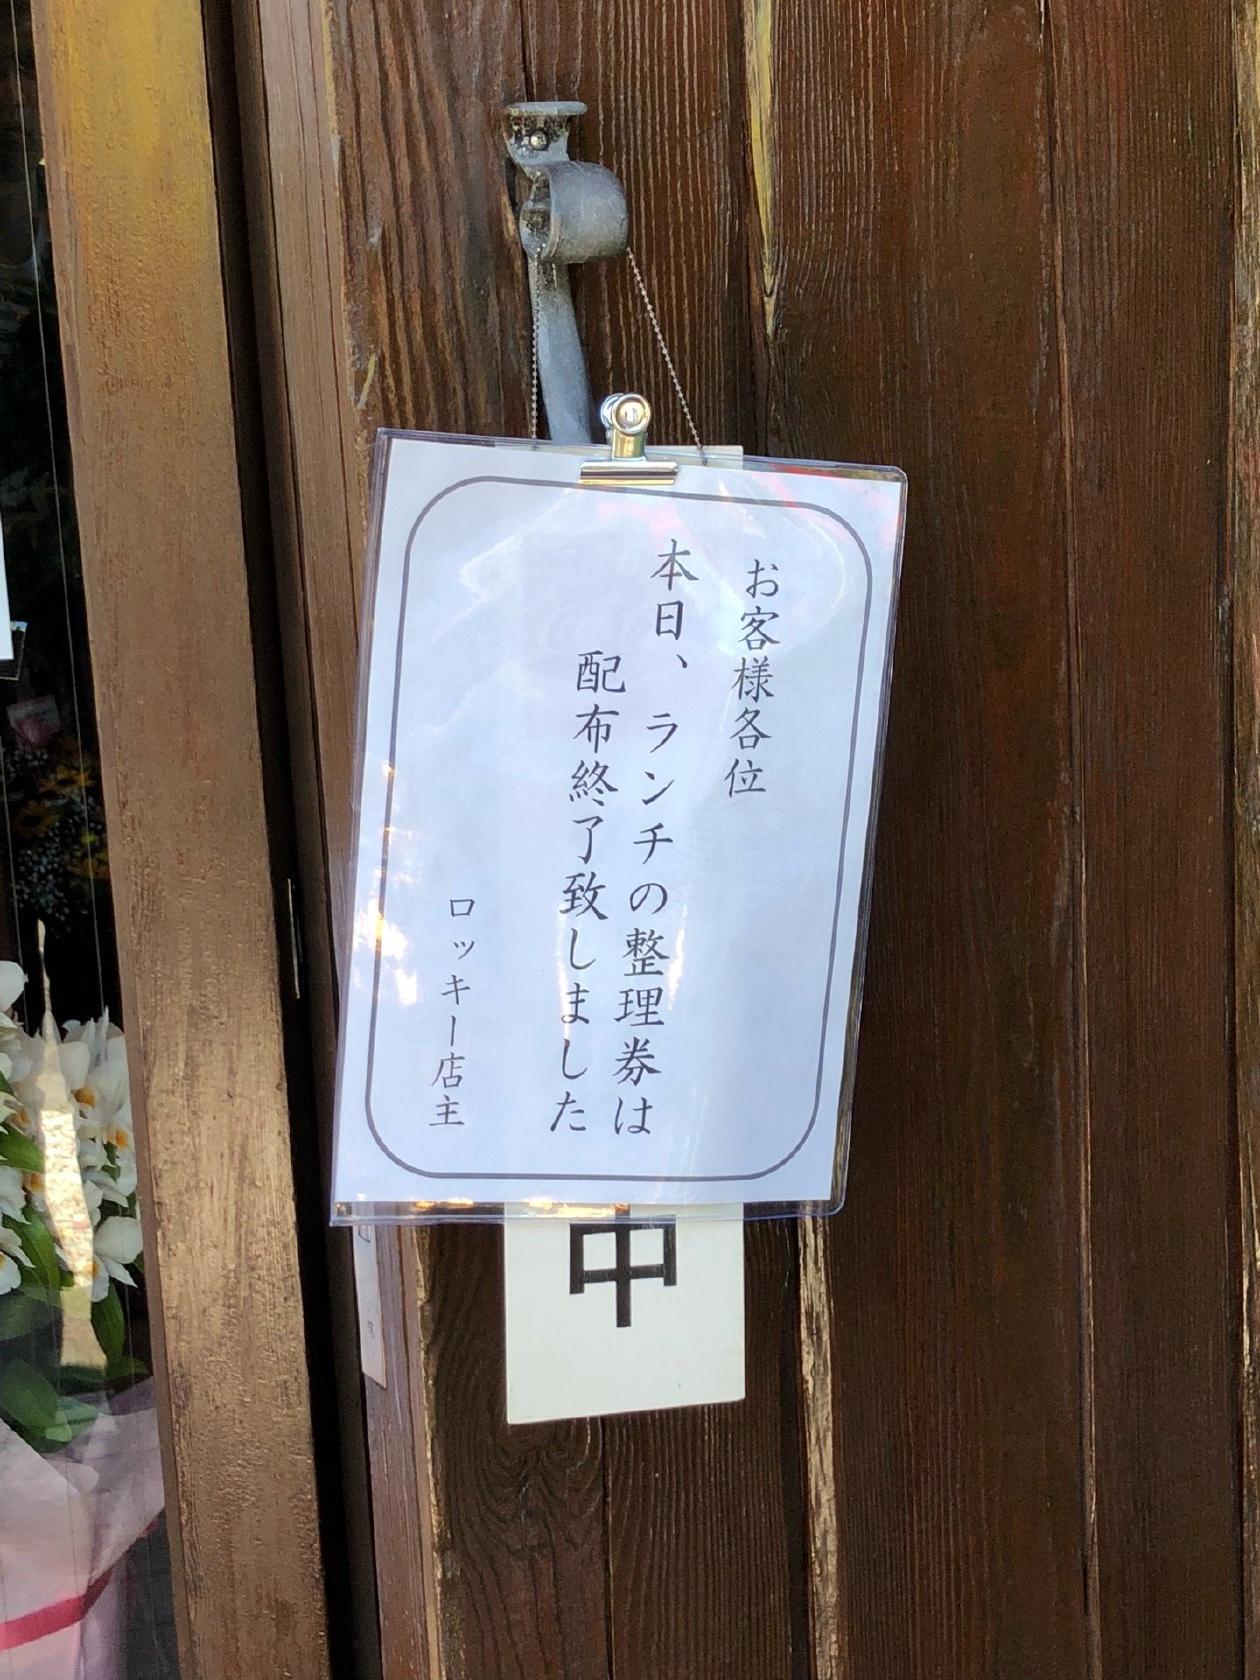 お客様各位
本日、ランチの整理券は
配布終了致しました
ロッキー店主
中